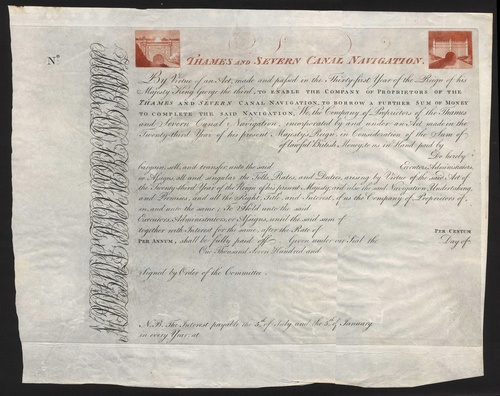 No.
THAMES AND SEVERN CANAL NAVIGATION.
By Virtue of an Act, made and passed in the Thirty-first Year of the Reign of his
Majesty King George the third, TO ENABLE THE COMPANY OF PROPRIETORS OF THE
THAMES AND SEVERN CANAL NAVIGATION, TO BORROW A FURTHER SUM OF MONEY
TO COMPLETE THE SAID NAVIGATION, We, the Company of Proprietors of the Thames
and Severn Canal Navigation, incorporated by and under an Act made in the
Twenty-third Year of his present Majesty's Reign, in Consideration of the Sum of
of lawful British Money, to us in Hand paid by
Do hereby
bargain, sell, and transfer unto the said Executors, Administrators,
or Assigns, all and singular the Tolls, Rates, and Duties, arising by Virtue of the said Act of
the Twenty-third Year of the Reign of his present Majesty, and also the said Navigation, Undertaking,
and Premises, and all the Right, Title, and Interest, of us the Company of Proprietors of,
in, and unto the same; To Hold unto the said
Executors, Administrators, or Assigns, until the said sum of
together with Interest for the same, after the Rate of PER CENTUM
PER ANNUM, shall be fully paid off. Given under our Seal the Day of
One Thousand Seven Hundred and
Signed by Order of the Committee.
N.B. The Interest payable the 5th of July and the 5th of January
in every Year, at